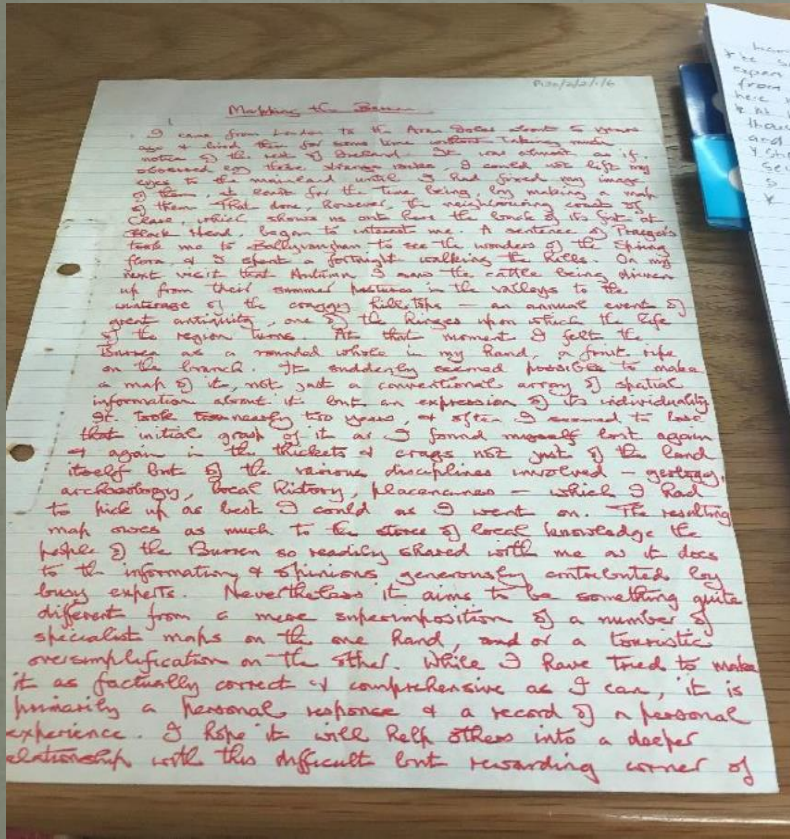 P120/2/2/1/6
Mapping the Burren
I came from London to the Aran Isles about 5 years
ago & lived there for some time without taking much
notice of the rest of Ireland. It was almost as if,
obsessed by these strange, I could not lift my
eyes to the mainland until I had fixed my image
of them, at least for the time being, by making a map
of them. That done, however, the neighbouring coast of
Clare, which shows us out here the back of its fist at
Black Head, began to interest me. A sentence of Praeger's
took me to Ballyvaughan to see the wonders of the Spring
flora, & I spent a fortnight walking the hills. On my
next visit that Autumn I saw the cattle being driven
up from their summer pastures in the valleys to the
winterage of the craggy hilltops — an annual event of
great antiquity, one of the hinges upon which the life
of the region turns. At that moment I felt the
Burren as a rounded whole in my hand, a fruit ripe
on the branch. It suddenly seemed possible to make
a map of it, not just a conventional array of spatial
information about it but an expression of its individuality
It took nearly two years, & often I seemed to lose
that initial grasp of it as I found myself lost again
& again in the thickets & crags not just of the land
itself but of the various disciplines involved — geology,
archaeology, local history, placenames — which I had
to pick up as best I could as I went on. The resulting
map owes as much to the store of local knowledge the
people of the Burren so readily shared with me as it does
to the information & opinions generously contributed by
busy experts. Nevertheless it aims to be something quite
different from a mere superimposition of a number of
specialist maps on the one hand, or a touristic
oversimplification on the other. While I have tried to make
it as factually correct & comprehensive as I can, it is
primarily a personal response & a record of a personal
experience. I hope it will help others into a deeper
relationship with this difficult but rewarding corner of
expert
from
here